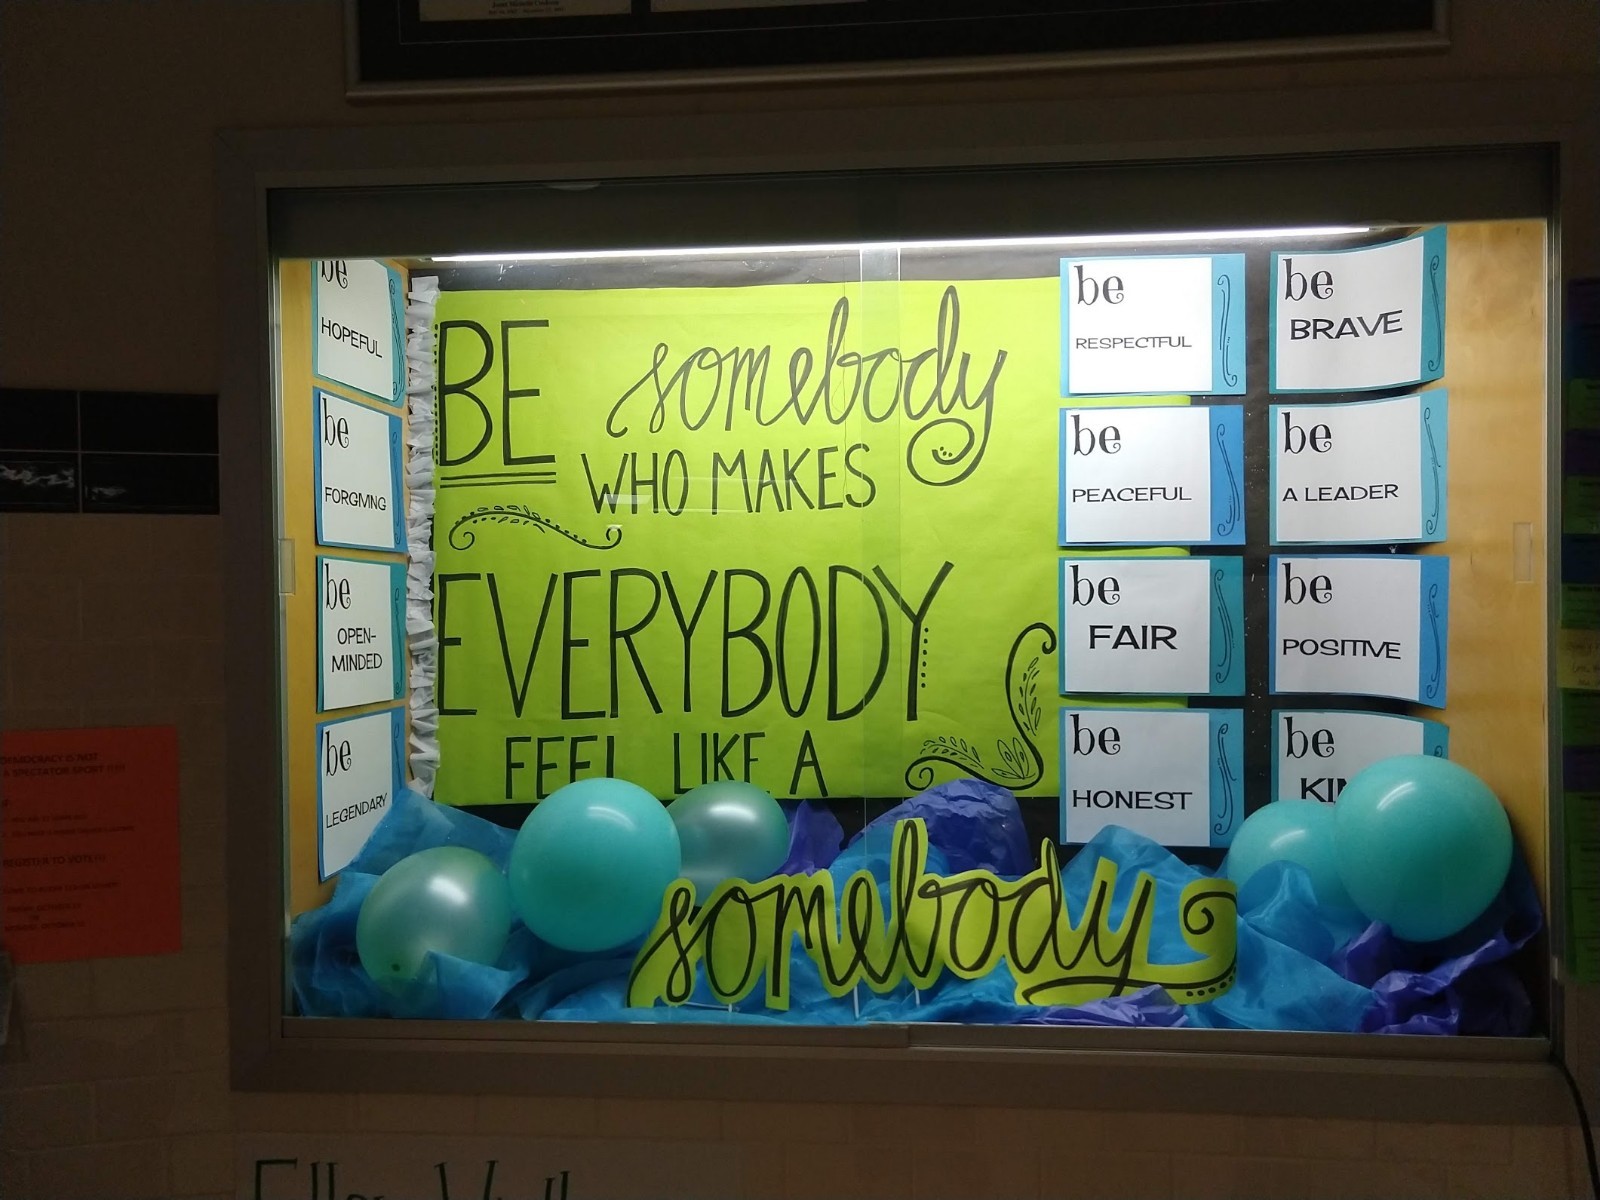 be
HOPEFUL
be
FORGIVING
be
OPEN-
MINDED
be
LEGENDARY
BE somebody
WHO MAKES
EVERYBODY
FEEL LIKE A
somebody
be
RESPECTFUL
be
PEACEFUL
be
FAIR
be
HONEST
be
BRAVE
be
A LEADER
be
POSITIVE
be
DEMOCRACY IS NOT
A SPECTATOR SPORT !!!!
REGISTER TO VOTE!!!